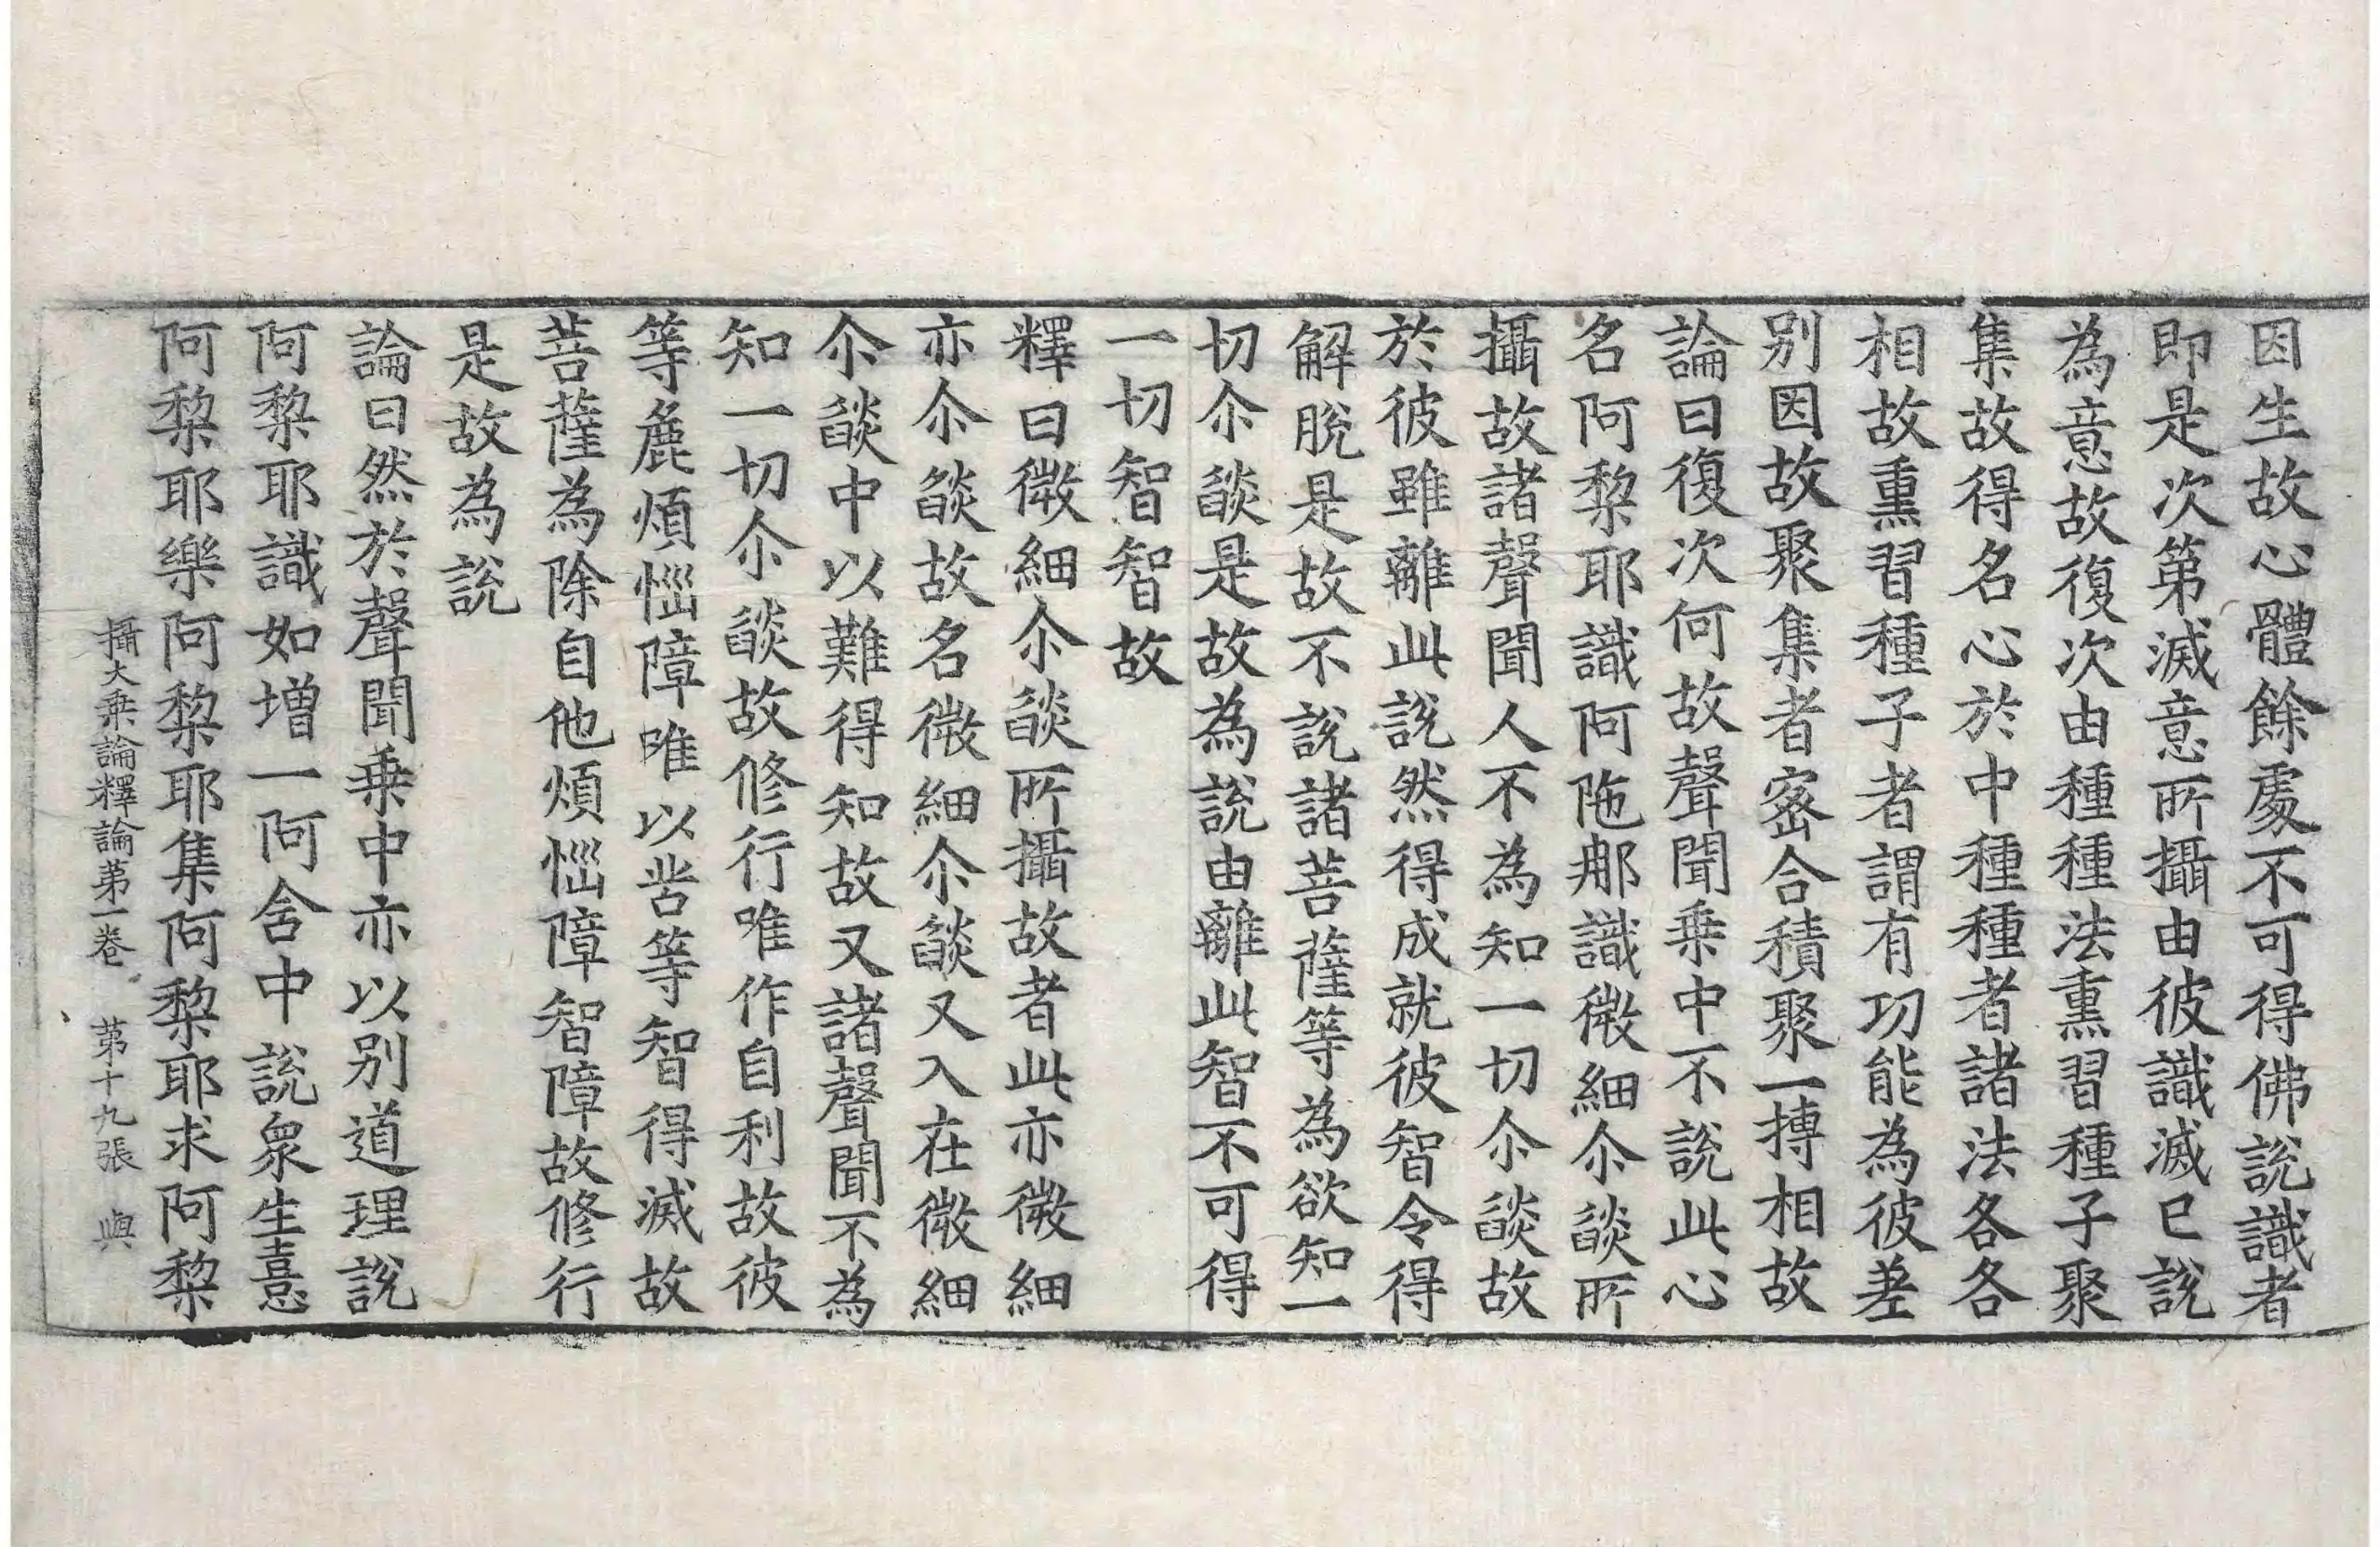 因生故心體餘處不可得佛說識者
即是次第滅意所攝由彼識滅已說
為意故復次由種種法熏習種子聚
集故得名心於中種種者諸法各各
相故熏習種子者謂有功能為彼差
別因故聚集者密合積聚一摶相故
論曰復次何故聲聞乘中不說此心
名阿黎耶識阿陁那識微細尒䜩所
攝故諸聲聞人不為知一切尒䜩故
於彼雖離此說然得成就彼智令得
解脫是故不說諸菩薩等為欲知一
切尒䜩是故為說由離此智不可得
一切智智故
釋曰微細尒䜩所攝故者此亦微細
亦尒䜩故名微細尒䜩又入在微細
尒䜩中以難得知故又諸聲聞不為
知一切尒䜩故修行唯作自利故彼
等麁煩惱障唯以苦等智得滅故
菩薩為除自他煩惱障智障故修行
是故為說
論曰然於聲聞乘中亦以別道理說
阿黎耶識如增一阿舍中說衆生憙
阿黎耶樂阿黎耶集阿黎耶求阿黎
攝大乘論釋論第一卷 第十九張 與